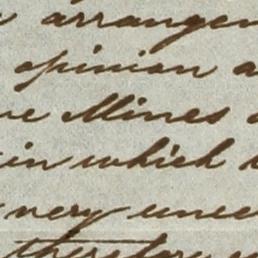 arrangem
opinion a
ve Mines
in which
very unce
therefore